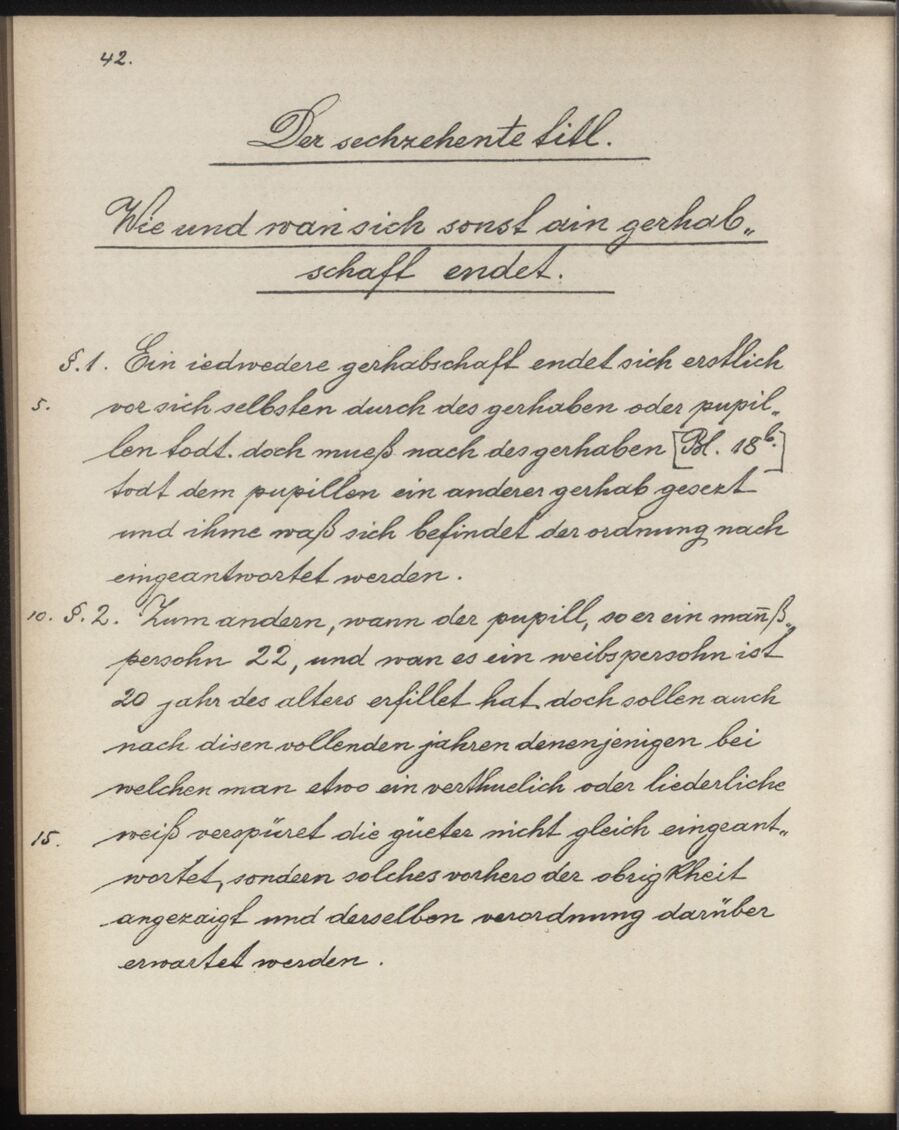 42.
Der sechzehente titl.
Wie und wan̄ sich sonst ain gerhab„
schaft endet.
§.1. Ein iedwedere gerhabschaft endet sich erstlich
5. vor sich selbsten durch des gerhaben oder pupil„
len todt. doch mueß nach des gerhaben [Bl. 18b.]
todt dem pupillen ein anderer gerhab gesezt
und ihme waß sich befindet der ordnung nach
eingeantwortet werden.
10. §.2. Zum andern, wann der pupill, so er ein man̄ß„
persohn 22, und wan es ein weibspersohn ist
20 jahr des alters erfillet hat. doch sollen auch
nach disen vollenden jahren denenjenigen bei
welchen man etwo ein verthuelich oder liederliche
15. weiß verspüret die güeter nicht gleich eingeant„
wortet, sondern solches vorhero der obrigkheit
angezaigt und derselben verordnung darüber
erwartet werden.